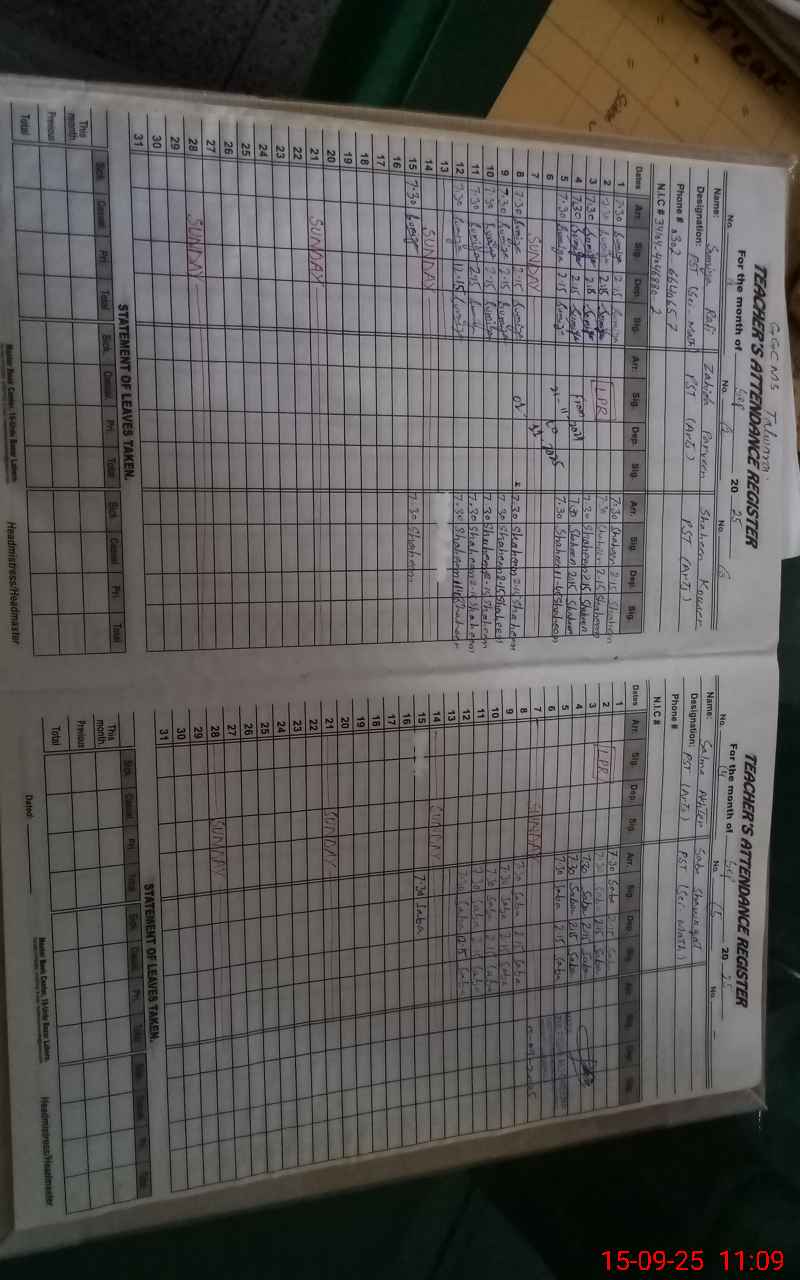 Break
GGCMS Talwara
TEACHER'S ATTENDANCE REGISTER
For the month of Sep 20 25
No. No. No.
Name: Sumiya Rafi Zahida Parveen Shaheen Kowser
Designation: PST (Sci. Math) PST (Arts) PST (Arts)
Phone # 0302 6640657
N.I.C #
Dates Arr. Sig. Dep. Sig. Arr. Sig. Dep. Sig. Arr. Sig. Dep. Sig.
1 7:30 Sumiya 2:15 Sumiya 7:30 Shaheen 2:15 Shaheen
2 7:30 Sumiya 2:15 Sumiya LPR 7:30 Shaheen 2:15 Shaheen
3 7:30 Sumiya 2:15 Sumiya 7:30 Shaheen 2:15 Shaheen
4 7:30 Sumiya 2:15 Sumiya From 7:30 Shaheen 2:15 Shaheen
5 7:30 Sumiya 2:15 Sumiya 7:30 Shaheen Shaheen
6
7 SUNDAY
8 7:30 Sumiya 2:15 Sumiya 7:30 Shaheen 2:15 Shaheen
9 7:30 Sumiya 2:15 Sumiya 7:30 Shaheen 2:15 Shaheen
10 7:30 Sumiya 2:15 Sumiya 7:30 Shaheen 2:15 Shaheen
11 7:30 Sumiya 2:15 Sumiya 7:30 Shaheen 2:15 Shaheen
12 7:30 Sumiya Sumiya 7:30 Shaheen Shaheen
13
14 SUNDAY
15 7:30 Sumiya 7:30 Shaheen
16
17
18
19
20
21 SUNDAY
22
23
24
25
26
27
28 SUNDAY
29
30
31
STATEMENT OF LEAVES TAKEN.
Sick. Casual. Pri. Total Sick. Casual. Pri. Total Sick. Casual. Pri. Total
This month.
Previous
Total
Master Book Center, 15-Urdu Bazar Lahore. Headmistress/Headmaster
TEACHER'S ATTENDANCE REGISTER
For the month of Sep 20 25
No. 14 No. 15 No.
Name: Salma Akhter Saba Shawkat
Designation: PST (Arts) PST (Sci. Math)
Phone #
N.I.C #
Dates Arr. Sig. Dep. Sig. Arr. Sig. Dep. Sig. Arr. Sig. Dep. Sig.
1 7:30 Saba 2:15 Saba
2 LPR 7:30 Saba 2:15 Saba
3 7:30 Saba 2:15 Saba
4 7:30 Saba 2:15 Saba
5 7:30 Saba 2:15 Saba
6
7 SUNDAY
8 7:30 Saba 2:15 Saba
9 7:30 Saba 2:15 Saba
10 7:30 Saba 2:15 Saba
11 7:30 Saba 2:15 Saba
12 7:30 Saba Saba
13
14 SUNDAY
15 7:30 Saba
16
17
18
19
20
21 SUNDAY
22
23
24
25
26
27
28 SUNDAY
29
30
31
STATEMENT OF LEAVES TAKEN.
Sick. Casual. Pri. Total Sick. Casual. Pri. Total Sick. Casual. Pri. Total
This month.
Previous
Total
Master Book Center, 15-Urdu Bazar Lahore.
Dated: Headmistress/Headmaster
15-09-25 11:09